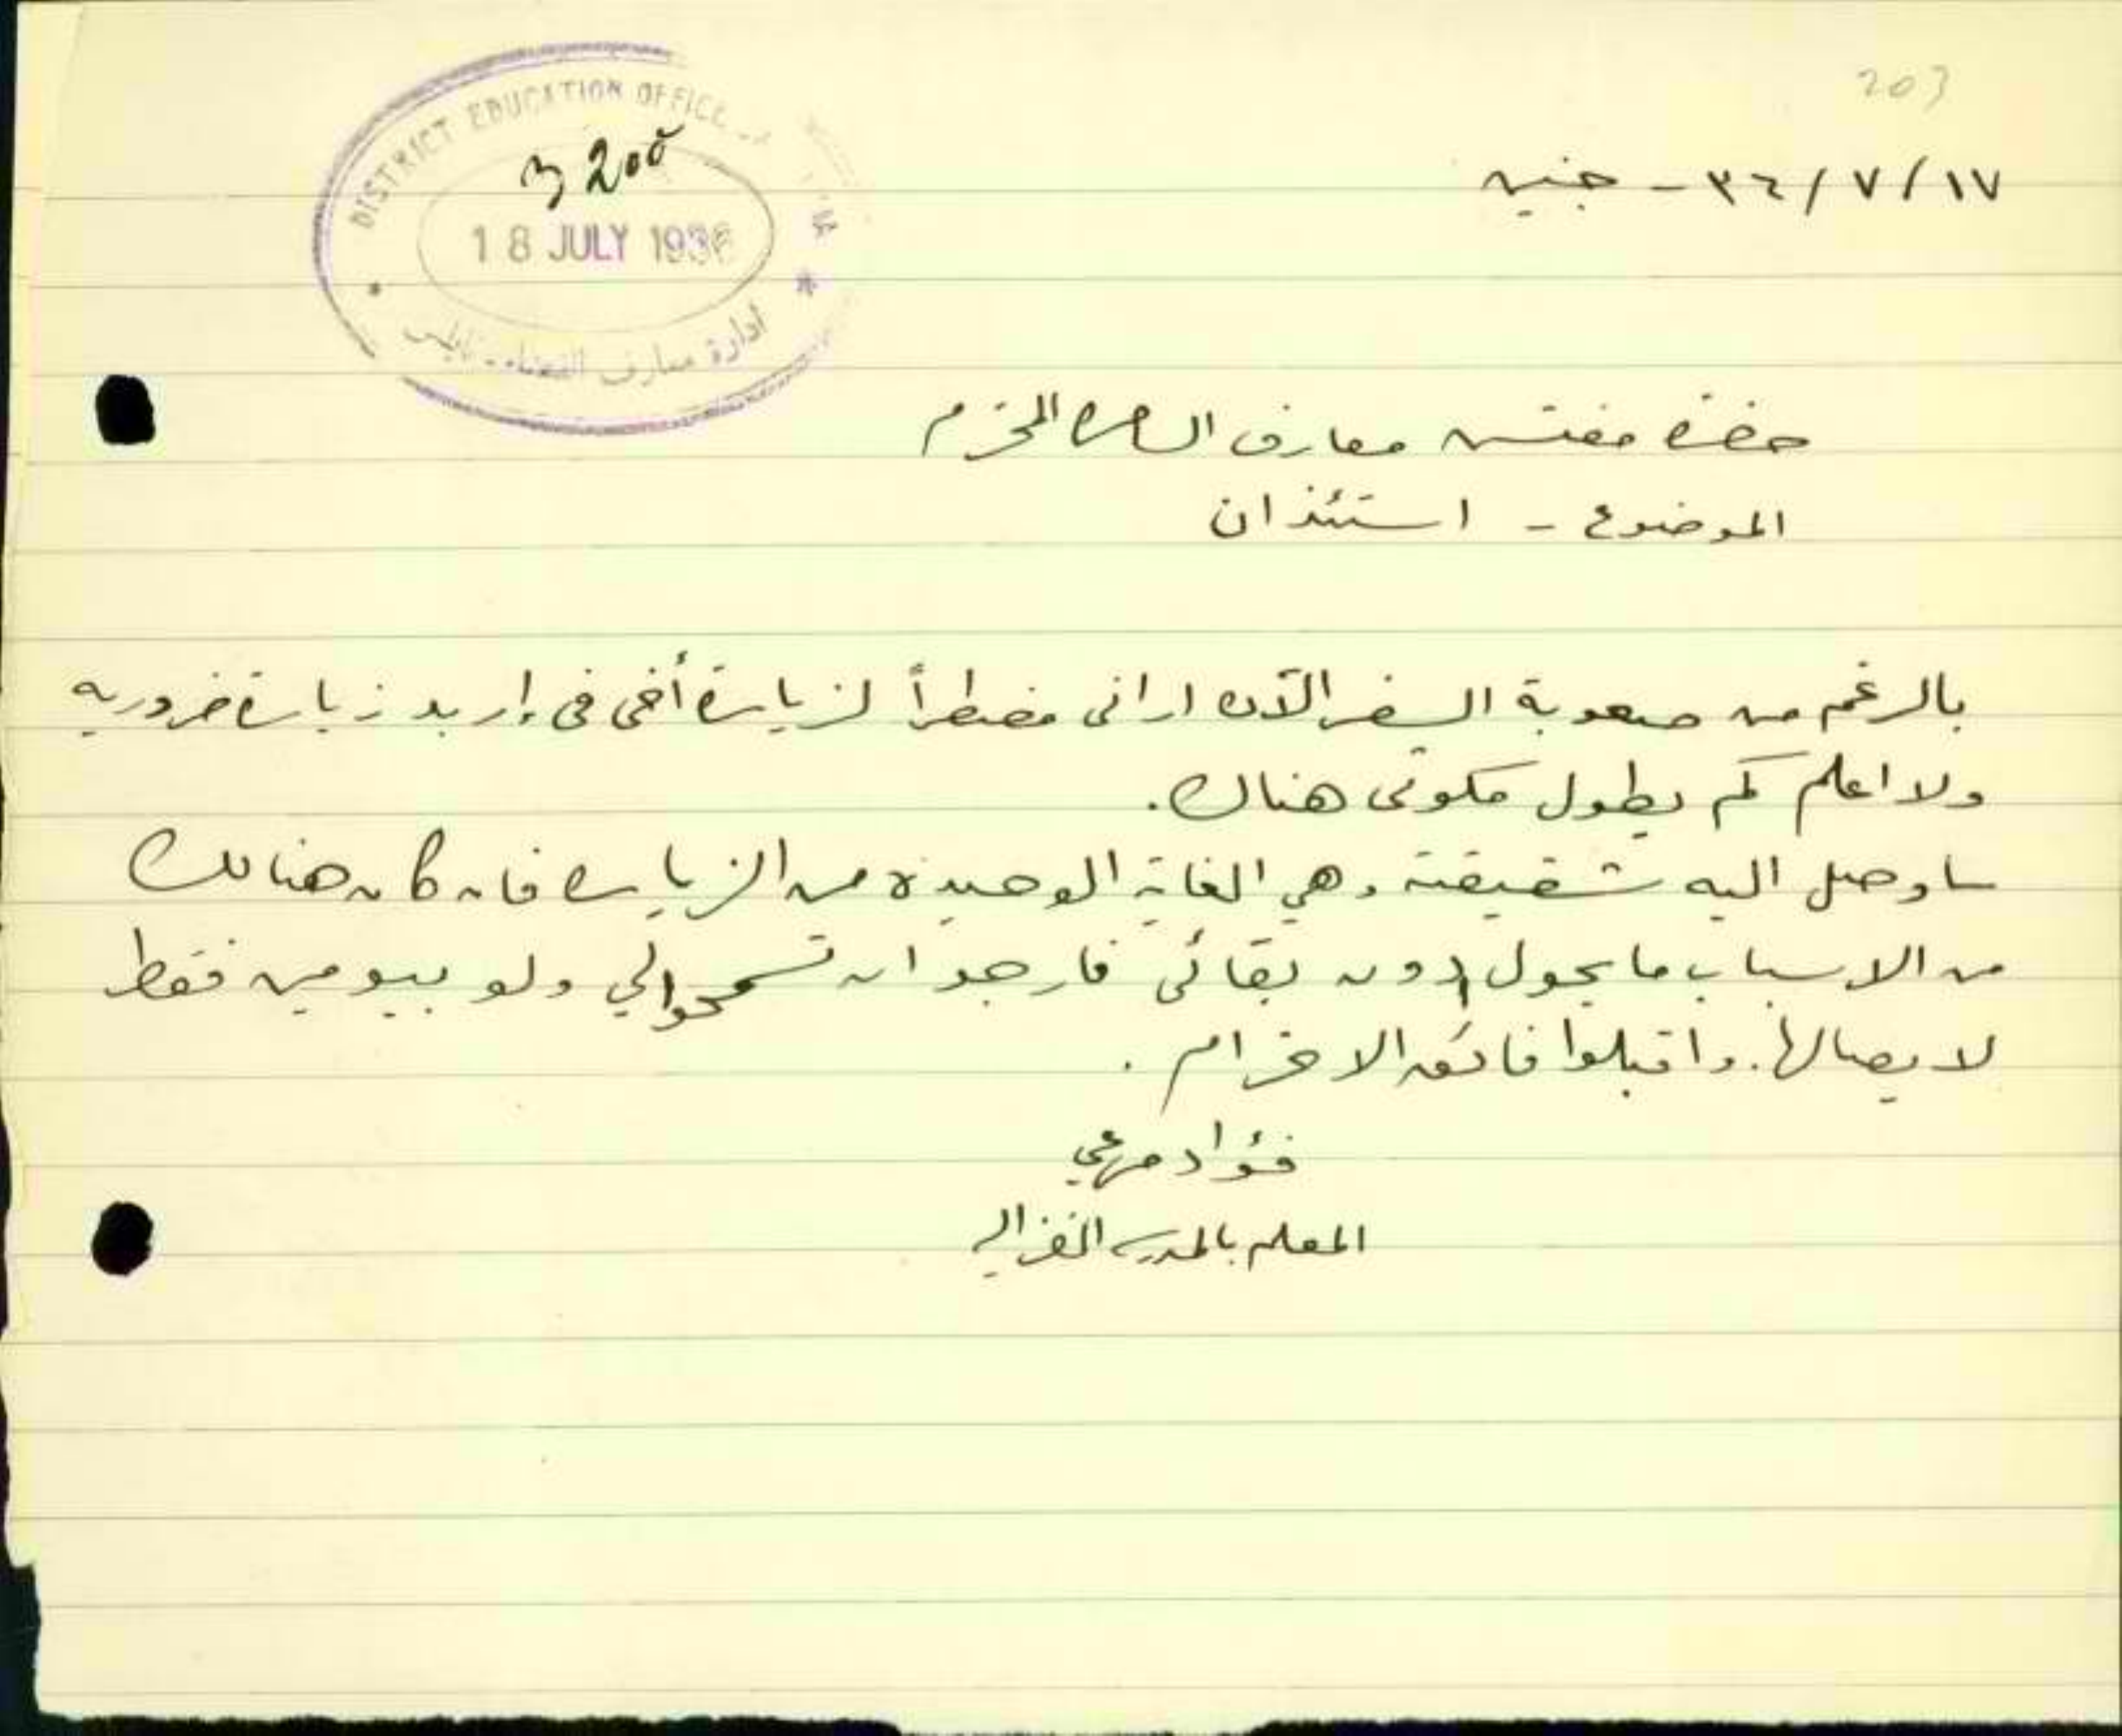 203
١٧/٧/٣٦ - جنين
DISTRICT EDUCATION OFFICE
3200
18 JULY 1936
ادارة معارف القضاء - نابلس
حضرة مفتش معارف المحترم
الموضوع - استئذان
بالرغم من صعوبة السفر الآن اراني مضطراً لزيارة أخي في إربد زيارة ضرورية
ولا اعلم كم يطول مكوثي هناك.
ساوصل اليه شقيقته وهي الغاية الوحيدة من الزيارة فان كان هنالك
من الاسباب ما يحول دون بقائي فارجو ان تسمحوا لي ولو بيومين فقط
لايصالها. واقبلوا فائق الاحترام.
فؤاد مرعي
المعلم بالمدرسة